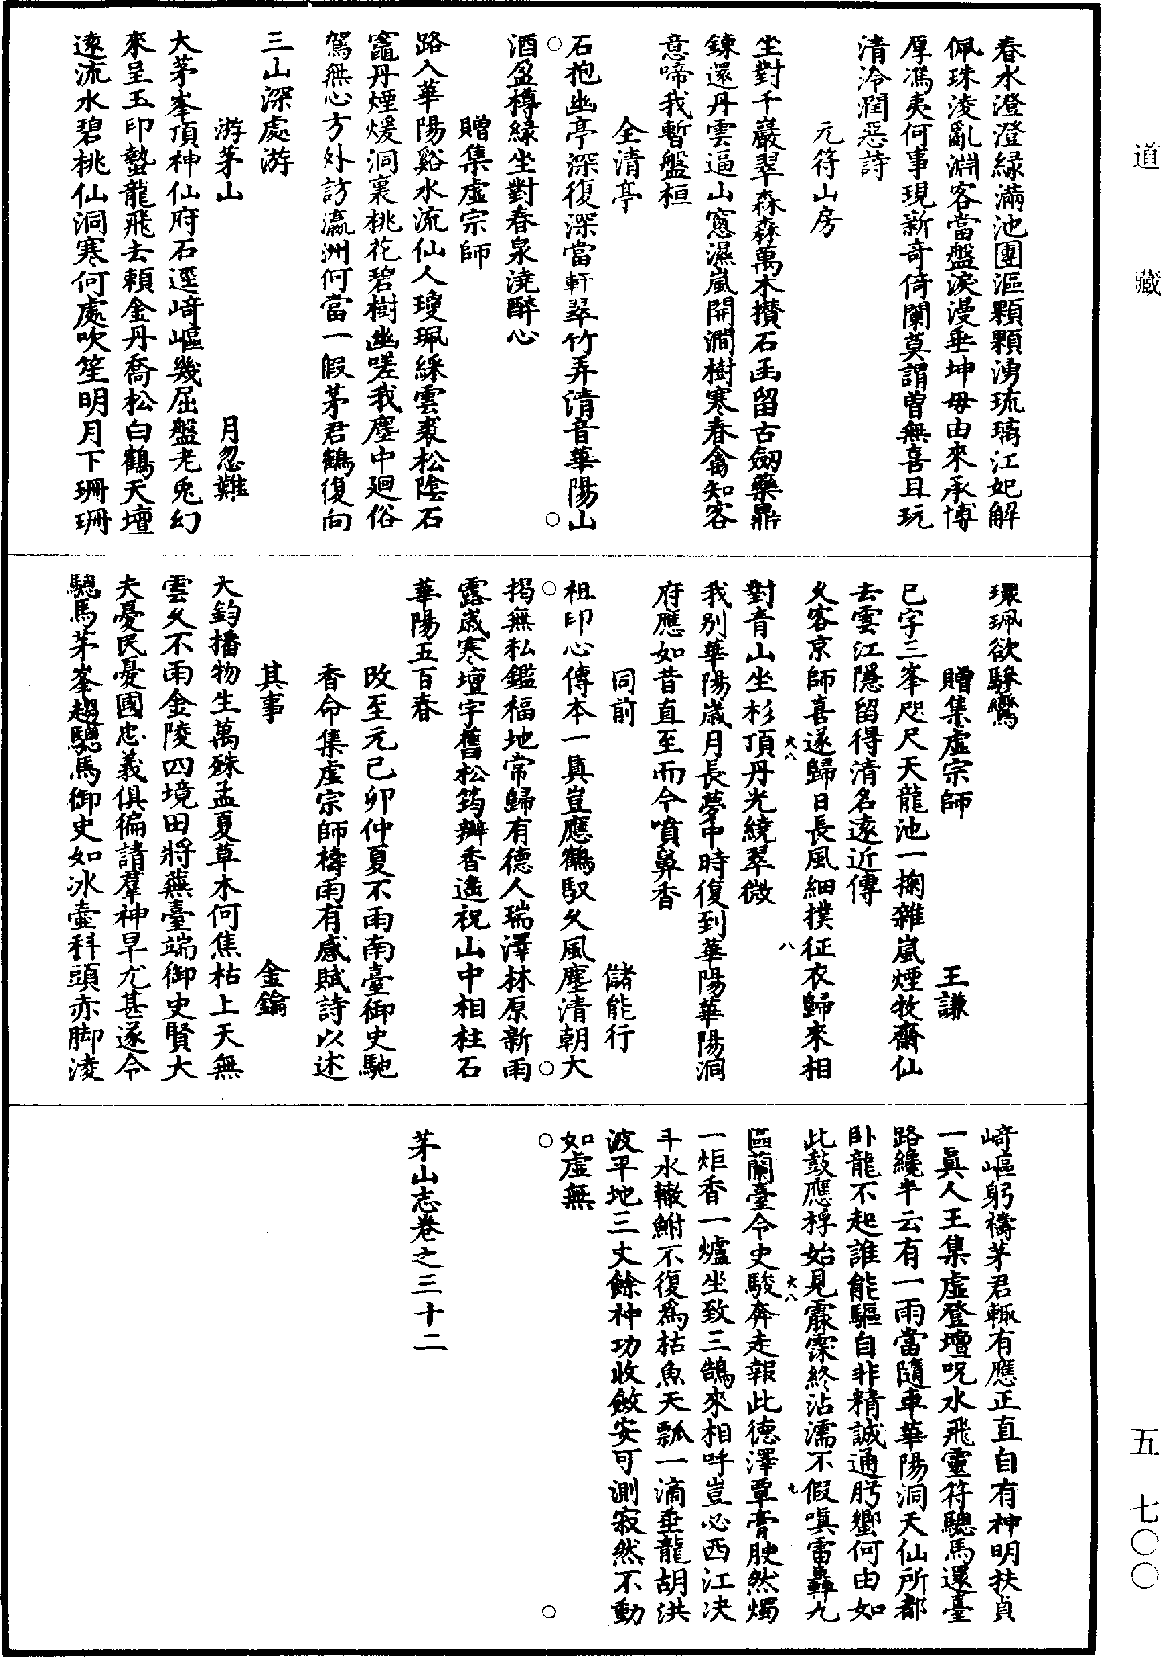 道藏
五 七〇〇
春水澄澄緑滿池團漚顆顆湧琉璃江妃解
佩珠淩亂淵客當盤淚漫垂坤毋由來承博
厚馮夷何事現新奇倚闌莫謂曽無喜且玩
清泠潤惡詩
元符山房
坐對千巖翠森森萬木攅石函留古劒藥鼎
鍊還丹雲逼山窻濕嵐開澗樹寒春禽知客
意啼我暫盤桓
全清亭
石抱幽亭深復深當軒翠竹弄清音華陽山
酒盈樽緑坐對春泉澆醉心
贈集虚宗師
路入華陽谿水流仙人瓊珮綵雲裘松陰石
竈丹煙煖洞裏桃花碧樹幽嗟我塵中廻俗
駕無心方外訪瀛洲何當一假茅君鶴復向
三山深處游
游茅山 月忽難
大茅峯頂神仙府石逕﨑嶇幾屈盤老兎幻
來呈玉印蟄龍飛去頼金丹喬松白鶴天壇
遠流水碧桃仙洞寒何處吹笙明月下珊珊
環珮欲驂鸞
贈集虚宗師 王謙
巳字三峯咫尺天龍池一掬雜嵐煙牧齋仙
去雲江隱留得清名遠近傳
久客京師喜遂歸日長風細撲征衣歸來相
對青山坐杉頂丹光繞翠微
我别華陽歲月長夢中時復到華陽華陽洞
府應如昔直至而今噴鼻香
同前 儲能行
祖印心傳本一真豈應鶴馭久風塵清朝大
揭無私鑑福地常歸有德人瑞澤林原新雨
露歲寒壇宇舊松筠瓣香遥祝山中相柱石
華陽五百春
改至元己卯仲夏不雨南臺御史馳
香命集虚宗師禱雨有感賦詩以述
其事 金鑰
大鈞播物生萬殊孟夏草木何焦枯上天無
雲久不雨金陵四境田將蕪臺端御史賢大
夫憂民憂國忠義俱徧諸羣神旱尤甚遂令
驄馬茅峯趨驄馬御史如冰壷科頭赤脚淩
﨑嶇躬禱茅君輒有應正直自有神明扶貞
一真人王集虚登壇呪水飛靈符驄馬還臺
路纔半云有一雨當隨車華陽洞天仙所都
卧龍不起誰能驅自非精誠通肹蠁何由如
此鼓應桴始見霢霂終沾濡不假嗔雷轟九
區蘭臺令史駿奔走報此德澤覃膏腴然燭
一炬香一爐坐致三鵠來相呼豈必西江决
斗水轍鮒不復爲枯魚天瓢一滴垂龍胡洪
波平地三丈餘神功收斂安可測寂然不動
如虚無
茅山志卷之三十二